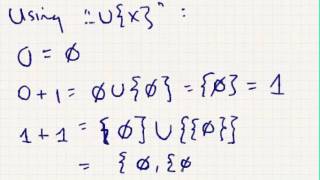 Using "∪{x}" :
0 = ∅
0+1 = ∅∪{∅} = {∅} = 1
1+1 = {∅}∪{{∅}}
= {∅,{∅